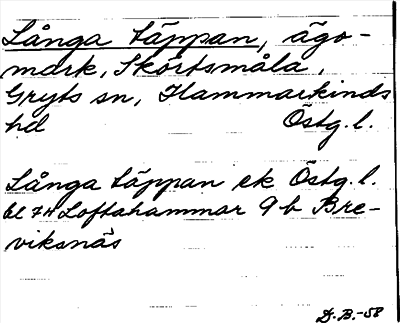 Långa täppan, ägo-
mark, Skörtsmåla,
Gryts sn, Hammarkinds
hd Östg. l.
Långa täppan ek Östg. l.
bl 7H Loftahammar 9 b Bre-
viksnäs
D. B. -58